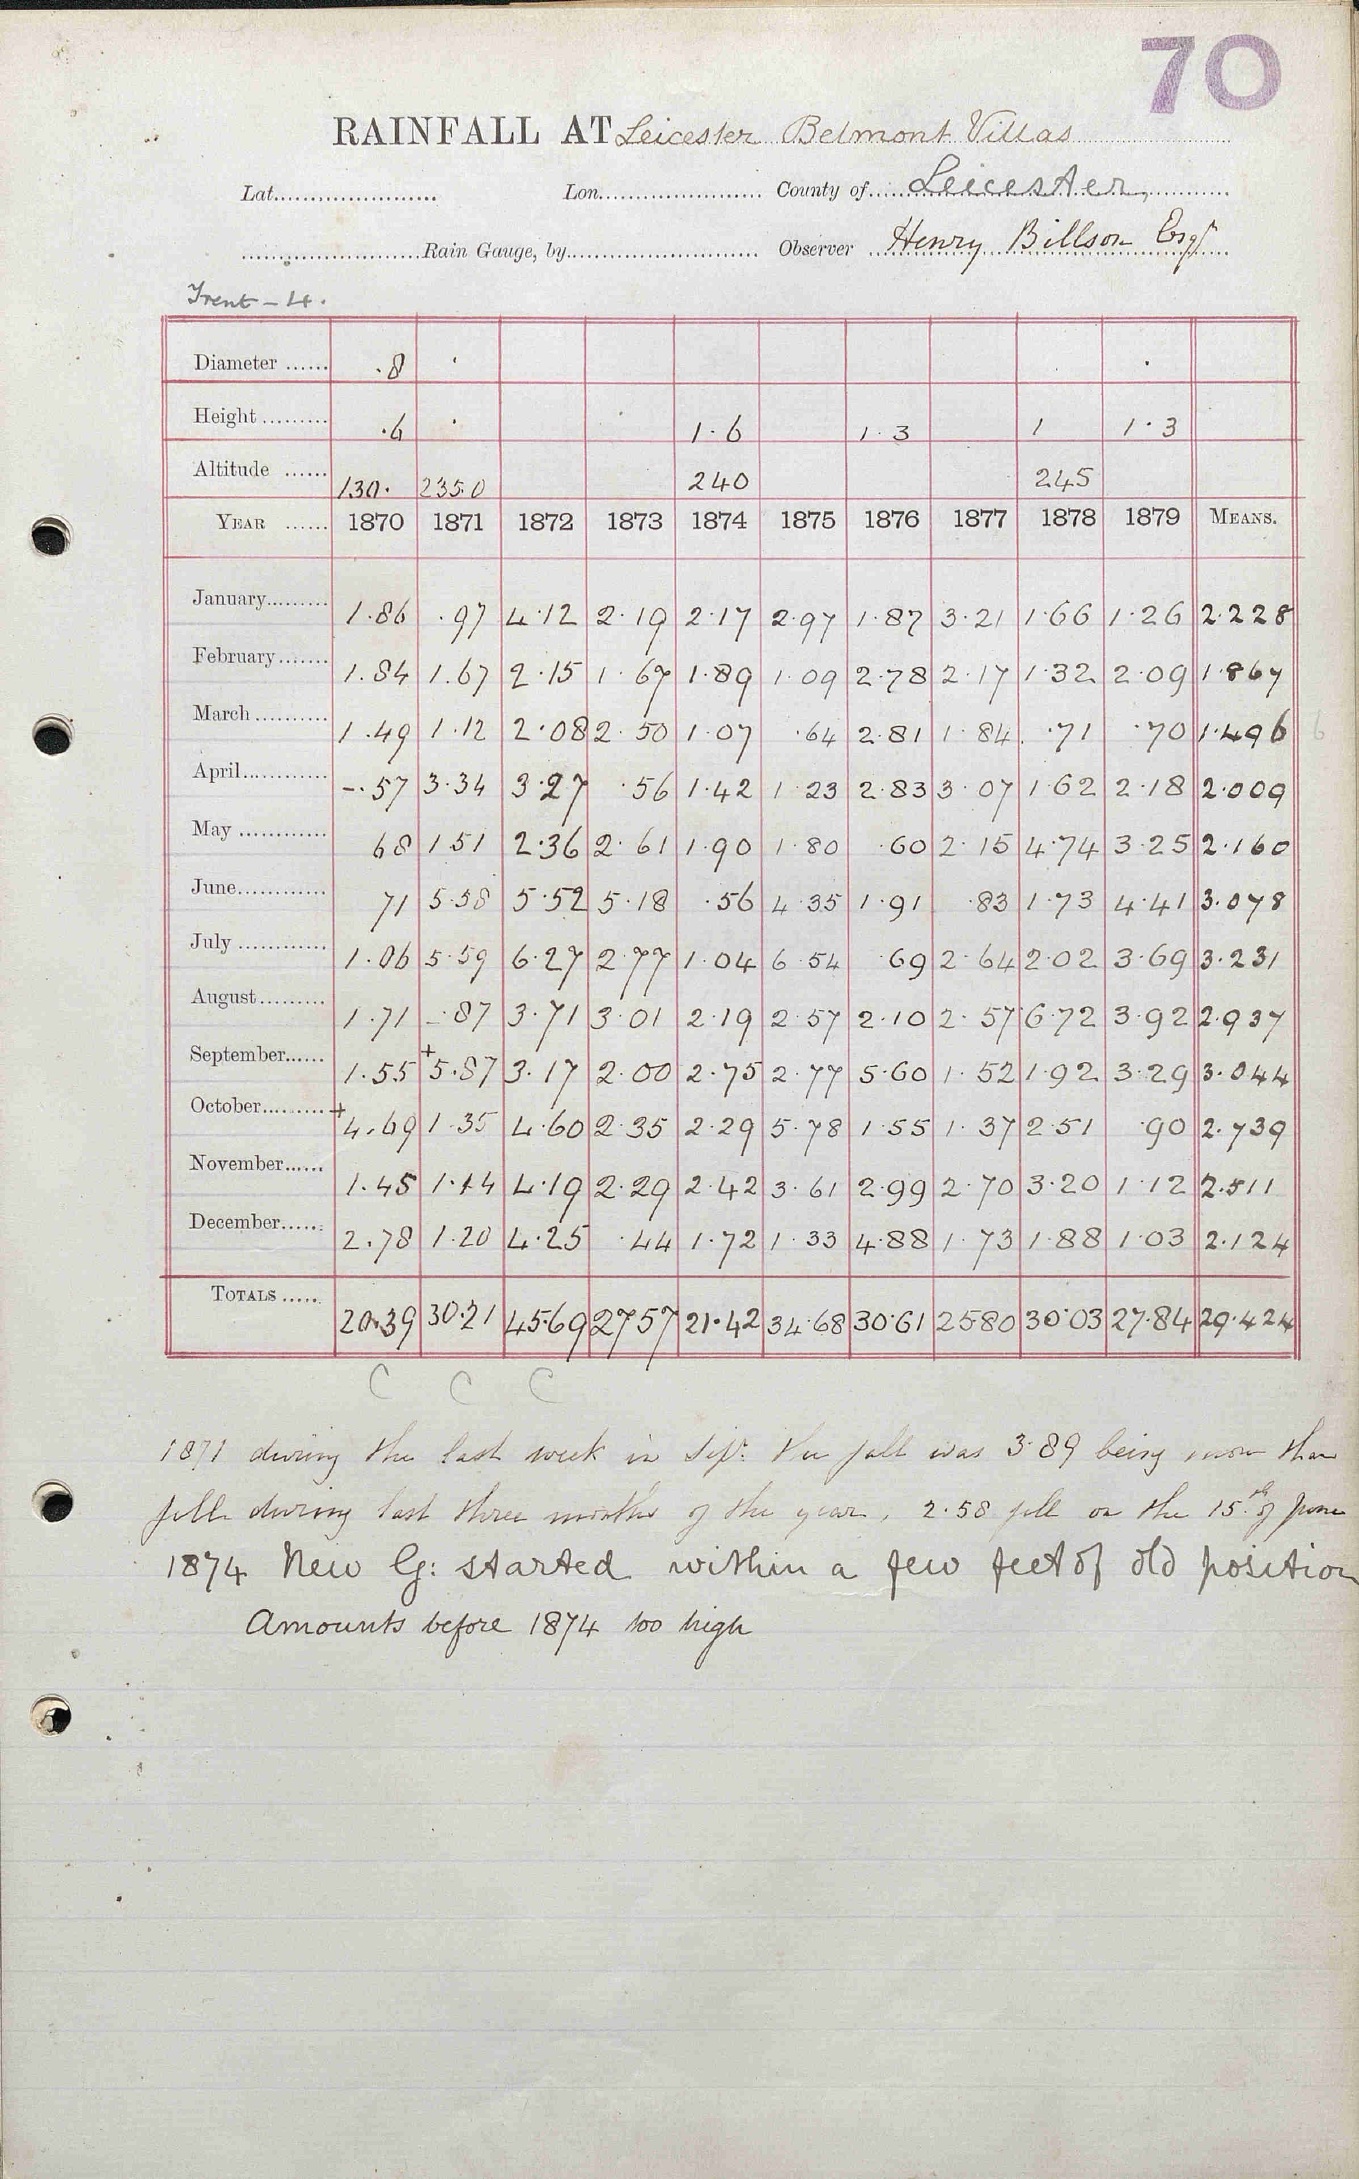 70
RAINFALL AT Leicester Belmont Villas
Lat. Lon. County of Leicester,
Rain Gauge, by Observer Henry Billson Esqr
Trent - 4.
Diameter .8
Height .6 1.6 1.3 1 1.3
Altitude 130. 235.0 240 245
YEAR 1870 1871 1872 1873 1874 1875 1876 1877 1878 1879 MEANS.
January 1.86 .97 4.12 2.19 2.17 2.97 1.87 3.21 1.66 1.26 2.228
February 1.84 1.67 2.15 1.67 1.89 1.09 2.78 2.17 1.32 2.09 1.867
March 1.49 1.12 2.08 2.50 1.07 .64 2.81 1.84 .71 .70 1.496 6
April -.57 3.34 3.27 .56 1.42 1.23 2.83 3.07 1.62 2.18 2.009
May 68 1.51 2.36 2.61 1.90 1.80 .60 2.15 4.74 3.25 2.160
June 71 5.58 5.52 5.18 .56 4.35 1.91 .83 1.73 4.41 3.078
July 1.06 5.59 6.27 2.77 1.04 6.54 .69 2.64 2.02 3.69 3.231
August 1.71 -.87 3.71 3.01 2.19 2.57 2.10 2.57 6.72 3.92 2.937
September 1.55 +5.87 3.17 2.00 2.75 2.77 5.60 1.52 1.92 3.29 3.044
October +4.69 1.35 4.60 2.35 2.29 5.78 1.55 1.37 2.51 .90 2.739
November 1.45 1.14 4.19 2.29 2.42 3.61 2.99 2.70 3.20 1.12 2.511
December 2.78 1.20 4.25 .44 1.72 1.33 4.88 1.73 1.88 1.03 2.124
TOTALS 20.39 30.21 45.69 27.57 21.42 34.68 30.61 25.80 30.03 27.84 29.424
C C C
1871 during the last week in Sept. the fall was 3.89 being more than
fell during last three months of the year, 2.58 fell on the 15th of June
1874 New G: started within a few feet of old position
Amounts before 1874 too high